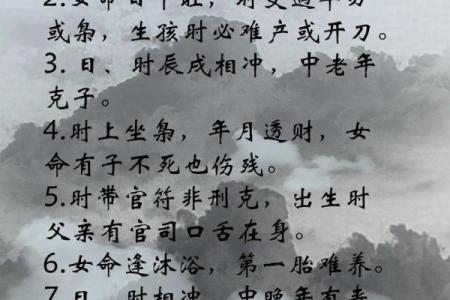 2.女命日
或枭，生孩时必难产或开刀。
3.日、时辰戌相冲，中老年
克子。
4.时上坐枭，年月透财，女
命有子不死也伤残。
5.时带官符非刑克，出生时
父亲有官司口舌在身。
6.女命逢沐浴，第一胎难养。
7.日、时相冲，中晚年有